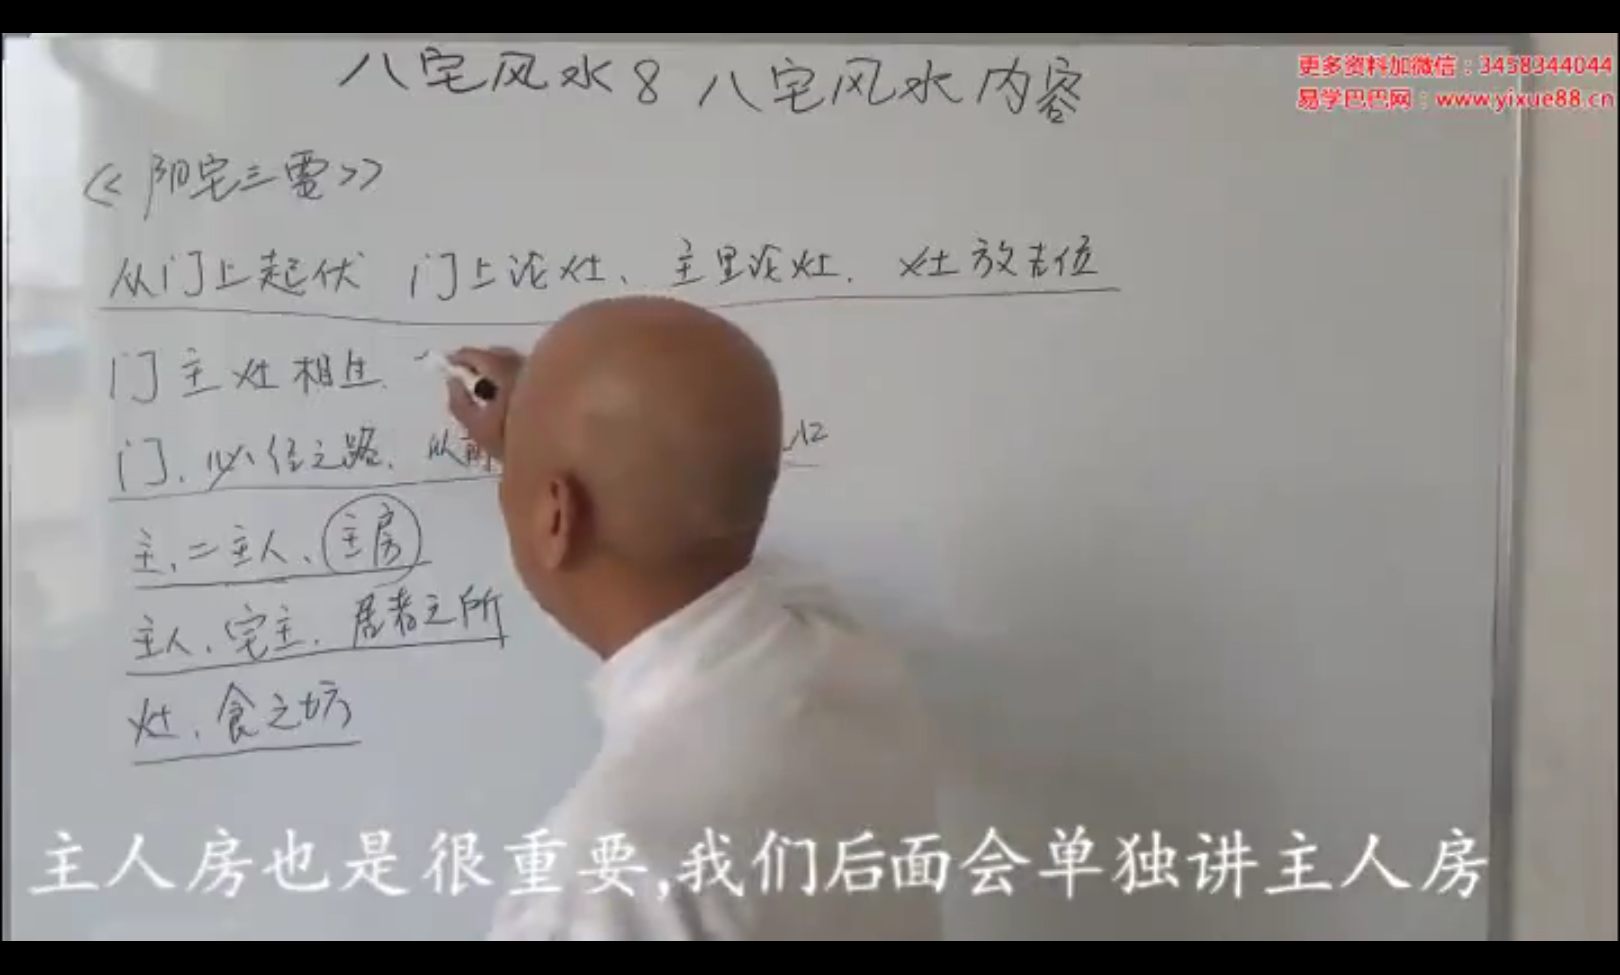 八宅风水8 八宅风水内容
更多资料加微信：3458344044
易学巴巴网：www.yixue88.cn
《阳宅三要》
从门上起伏 门上论灶、主里论灶. 灶放吉位
门主灶相生.
门、必经之路. 从前
主、二主人、主房
主人、宅主. 居者之所
灶、食之坊
主人房也是很重要,我们后面会单独讲主人房